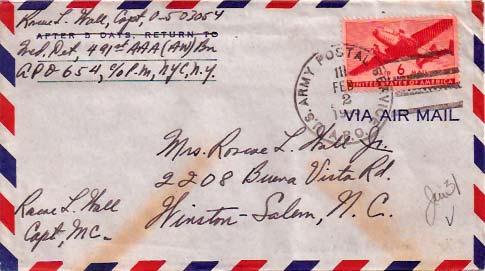 Roscoe L. Wall, Capt O-503054
AFTER 5 DAYS, RETURN TO
Med, Det, 491st AAA (AW) Bn
APO 654, c/o P.M, NYC, N.Y.
6¢
UNITED STATES OF AMERICA
U.S. ARMY POSTAL SERVICE
FEB
2
19
A.P.O.
VIA AIR MAIL
Mrs. Roscoe L. Wall Jr.
2208 Buena Vista Rd.
Winston-Salem, N.C.
Jan 31
V
Roscoe L. Wall
Capt, MC-